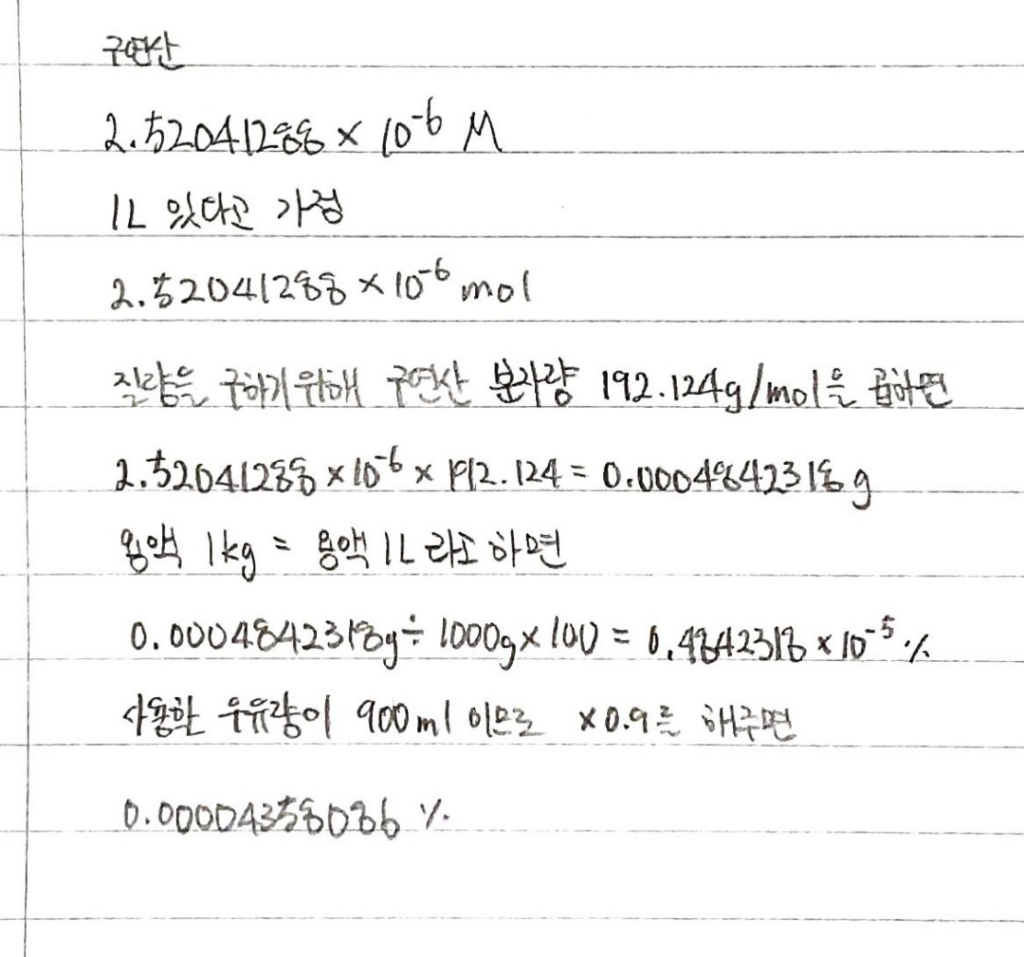 구연산
2.52041288 × 10⁻⁶ M
1L 있다고 가정
2.52041288 × 10⁻⁶ mol
질량을 구하기위해 구연산 분자량 192.124g/mol을 곱하면
2.52041288 × 10⁻⁶ × 192.124 = 0.0004842318 g
용액 1kg = 용액 1L 라고 하면
0.0004842318g ÷ 1000g × 100 = 0.4842318 × 10⁻⁵ %
사용한 우유량이 900ml 이므로 ×0.9를 해주면
0.00004358086 %